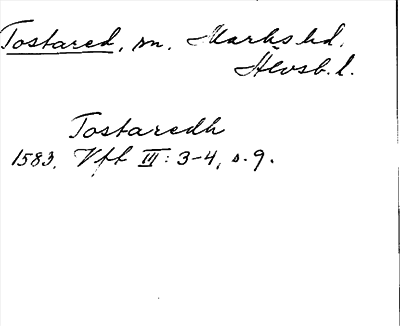 Tostared, sn. Marks hd.
Älvsb. l.
Tostaredh
1583. Vff III: 3-4, s. 9.